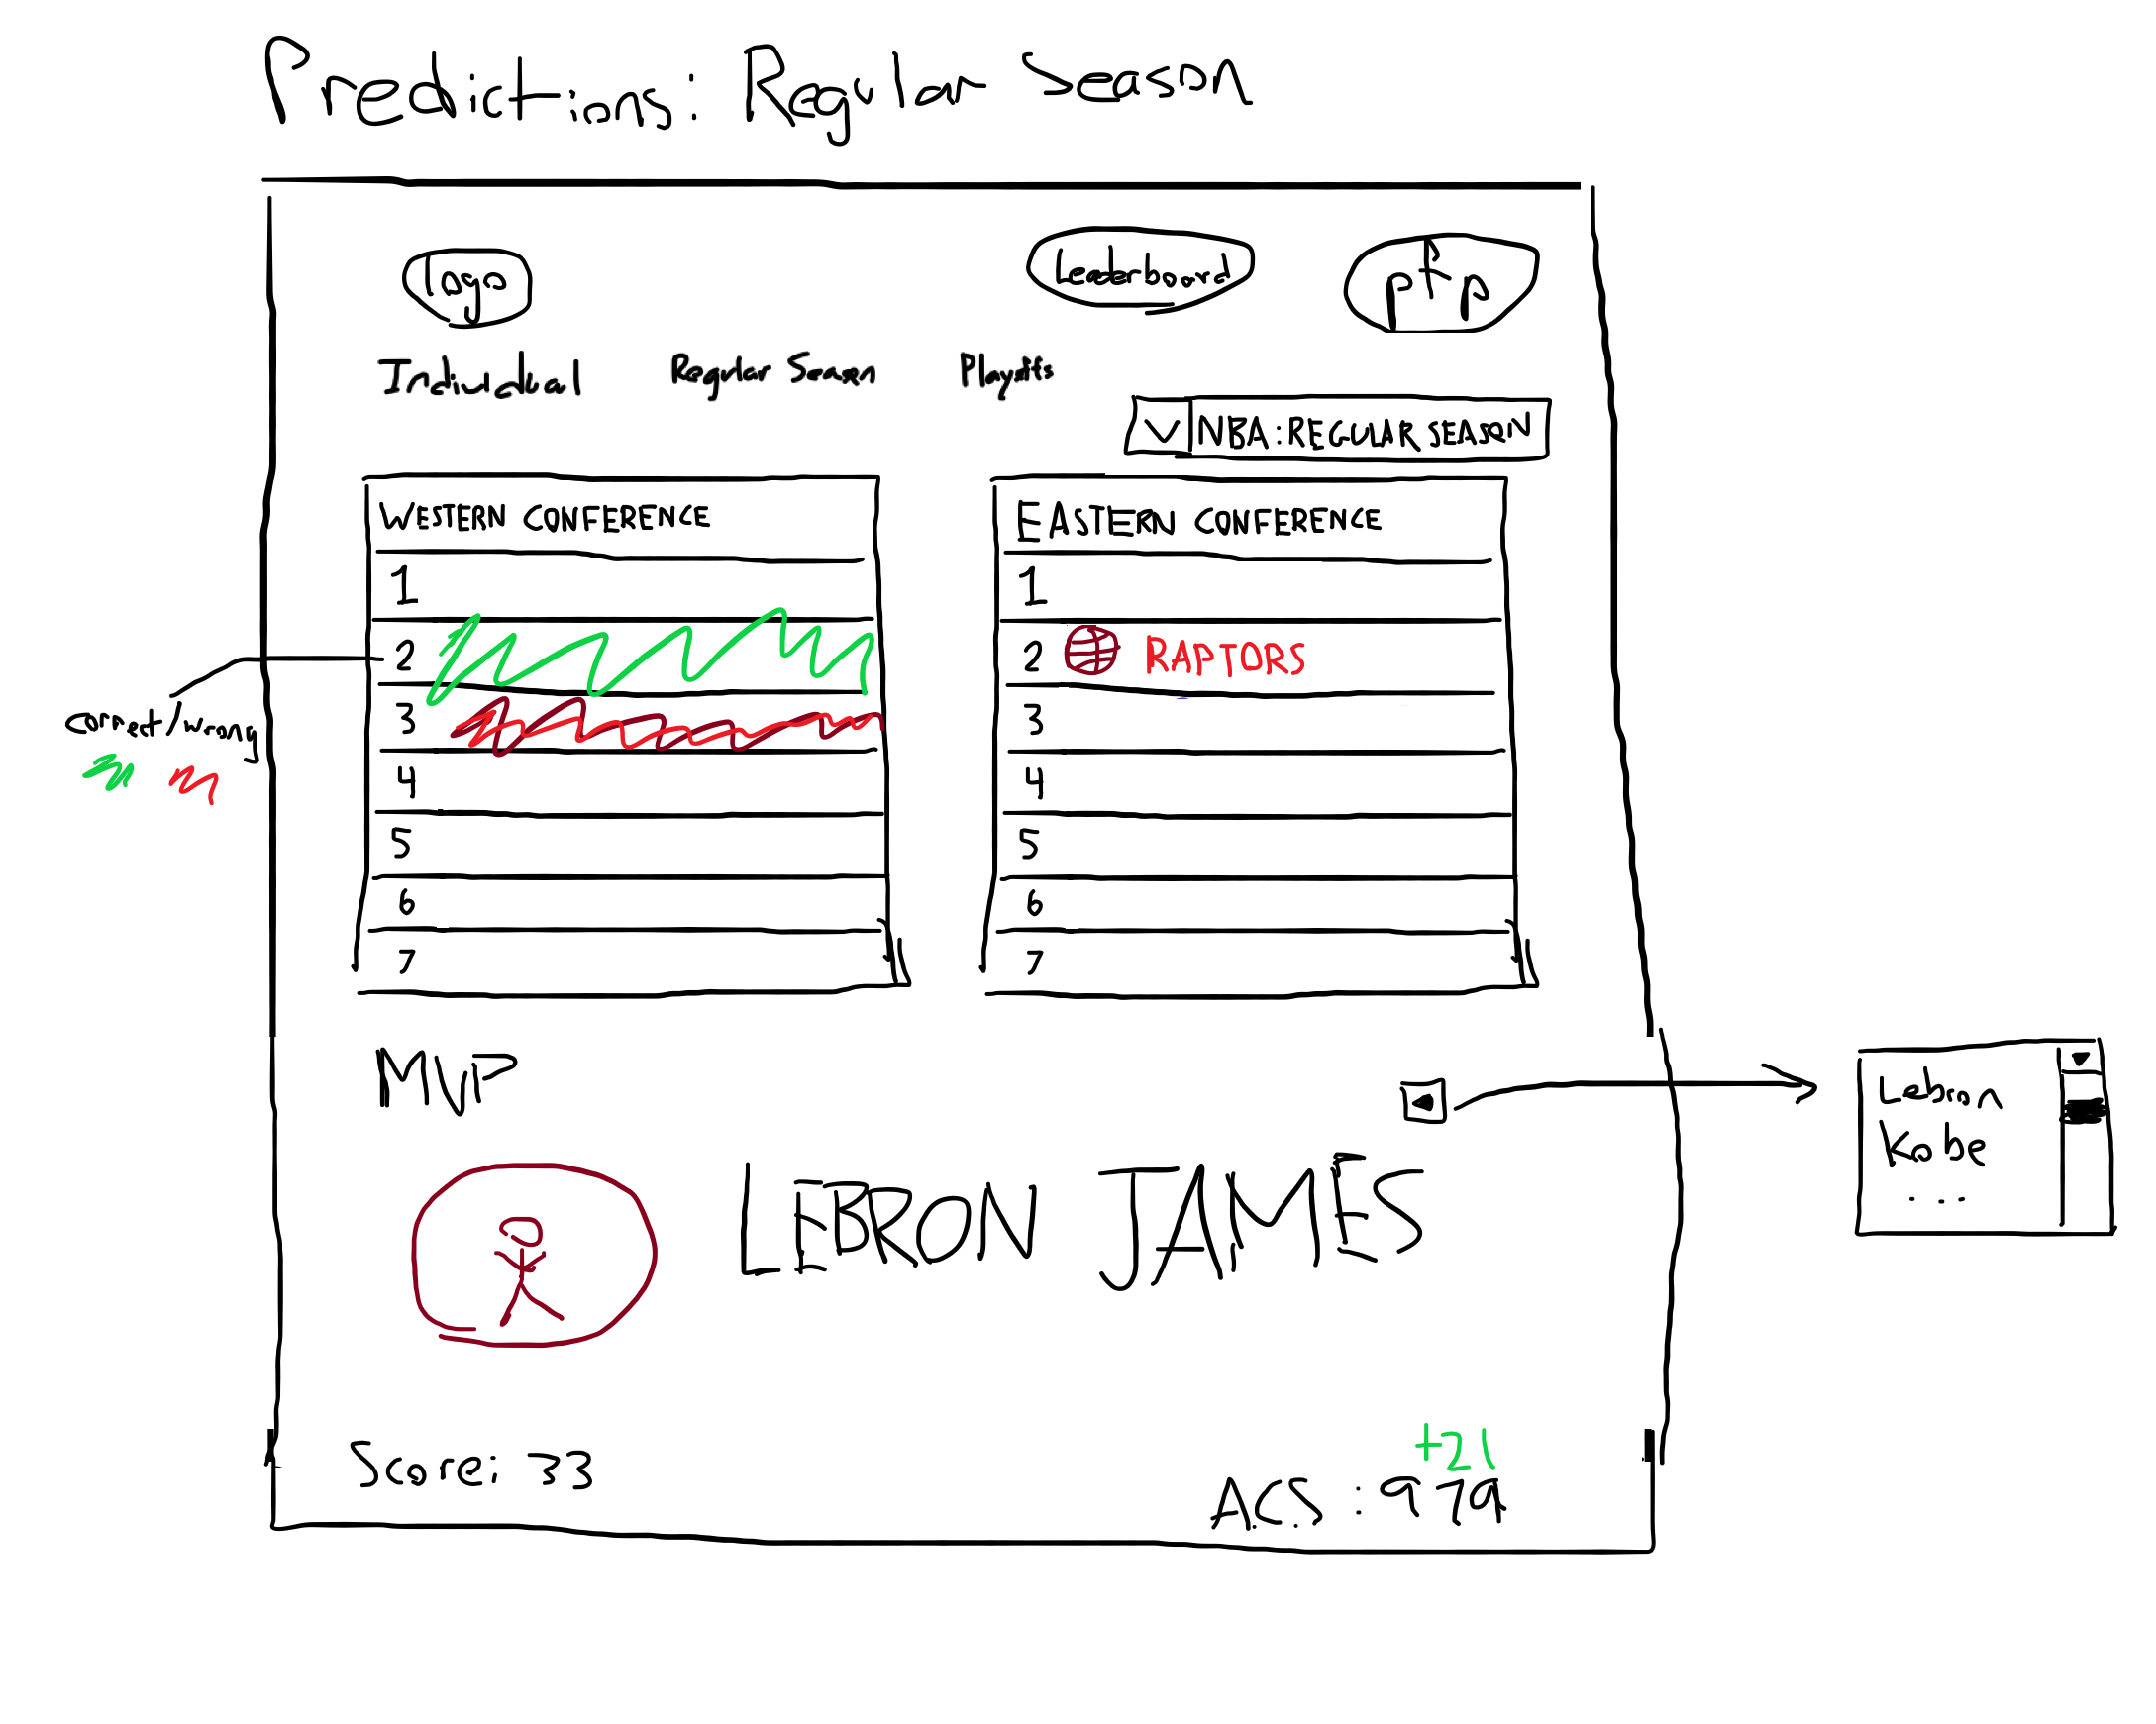 Predictions: Regular Season
logo
Leaderboard
pfp
Individual
Regular Season
Playoffs
NBA: REGULAR SEASON
WESTERN CONFERENCE
1
2
3
4
5
6
7
EASTERN CONFERENCE
1
2 RAPTORS
3
4
5
6
7
correct/wrong
MVP
LEBRON JAMES
Lebron
Kobe
...
Score: 33
+21
A.C.S : 979